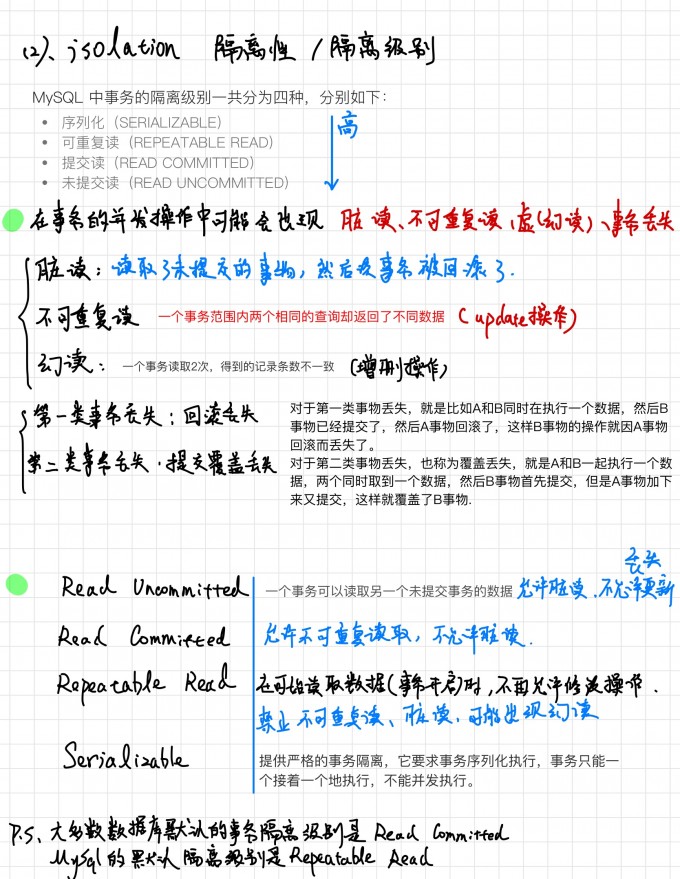 (2)、isolation 隔离性 / 隔离级别
MySQL 中事务的隔离级别一共分为四种，分别如下：
• 序列化（SERIALIZABLE）
• 可重复读（REPEATABLE READ）
• 提交读（READ COMMITTED）
• 未提交读（READ UNCOMMITTED）
高
在事务的并发操作中可能会出现 脏读、不可重复读、虚(幻读)、事务丢失
脏读：读取了未提交的事物，然后该事务被回滚了.
不可重复读 一个事务范围内两个相同的查询却返回了不同数据 (update操作)
幻读： 一个事务读取2次，得到的记录条数不一致 (增删操作)
第一类事务丢失：回滚丢失
第二类事务丢失：提交覆盖丢失
对于第一类事物丢失，就是比如A和B同时在执行一个数据，然后B
事物已经提交了，然后A事物回滚了，这样B事物的操作就因A事物
回滚而丢失了。
对于第二类事物丢失，也称为覆盖丢失，就是A和B一起执行一个数
据，两个同时取到一个数据，然后B事物首先提交，但是A事物加下
来又提交，这样就覆盖了B事物.
丢失
Read Uncommitted 一个事务可以读取另一个未提交事务的数据 允许脏读、不允许更新
Read Committed 允许不可重复读取，不允许脏读.
Repeatable Read 在开始读取数据(事务开启)时,不再允许修改操作.
禁止不可重复读、脏读,可能出现幻读
Serializable 提供严格的事务隔离，它要求事务序列化执行，事务只能一
个接着一个地执行，不能并发执行。
P.S. 大多数数据库默认的事务隔离级别是 Read Committed
MySql 的默认隔离级别是 Repeatable Read